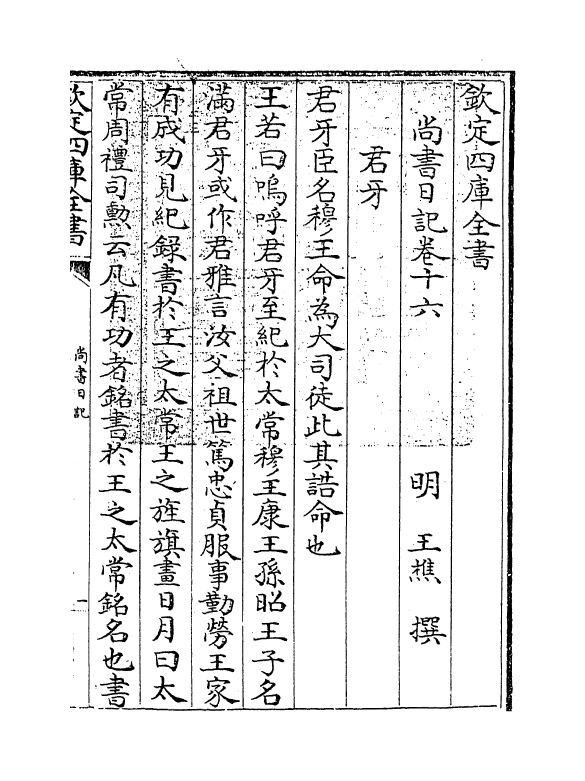 欽定四庫全書
尚書日記卷十六　明　王樵　撰
君牙
君牙臣名穆王命為大司徒此其誥命也
王若曰嗚呼君牙至紀於太常穆王康王孫昭王子名
滿君牙或作君雅言汝父祖世篤忠貞服事勤勞王家
有成功見紀録書於王之太常王之旌旗畫日月曰太
常周禮司勲云凡有功者銘書於王之太常銘名也書
欽定四庫全書
尚書日記
一